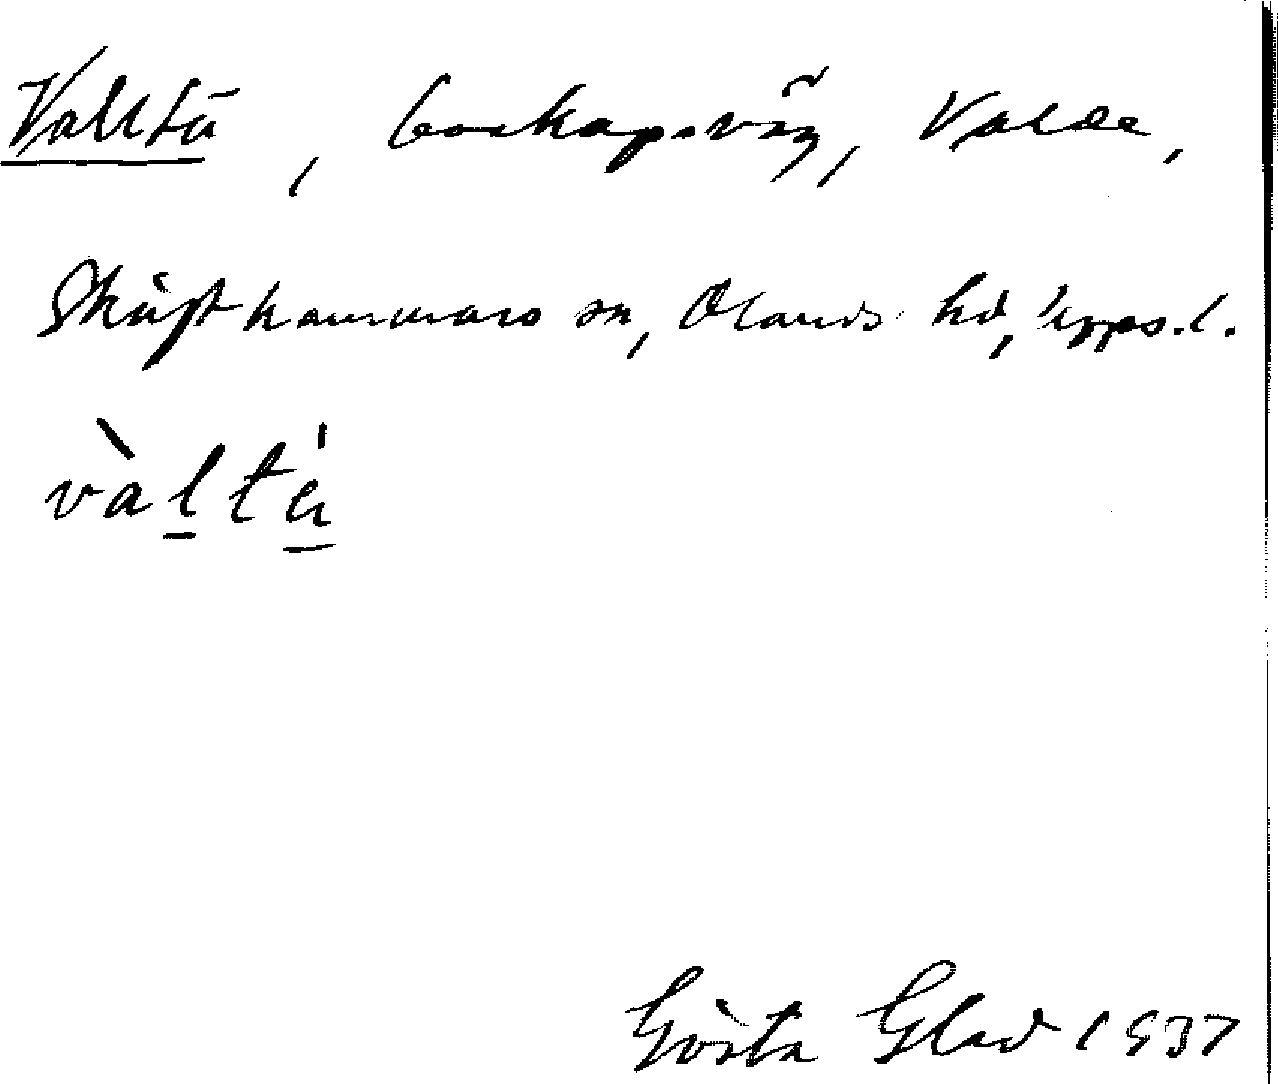 Valltå, boskapsväg, Valde,
Skäfthammars sn, Olands hd, Upps.l.
vàltå
Gösta Glad 1937